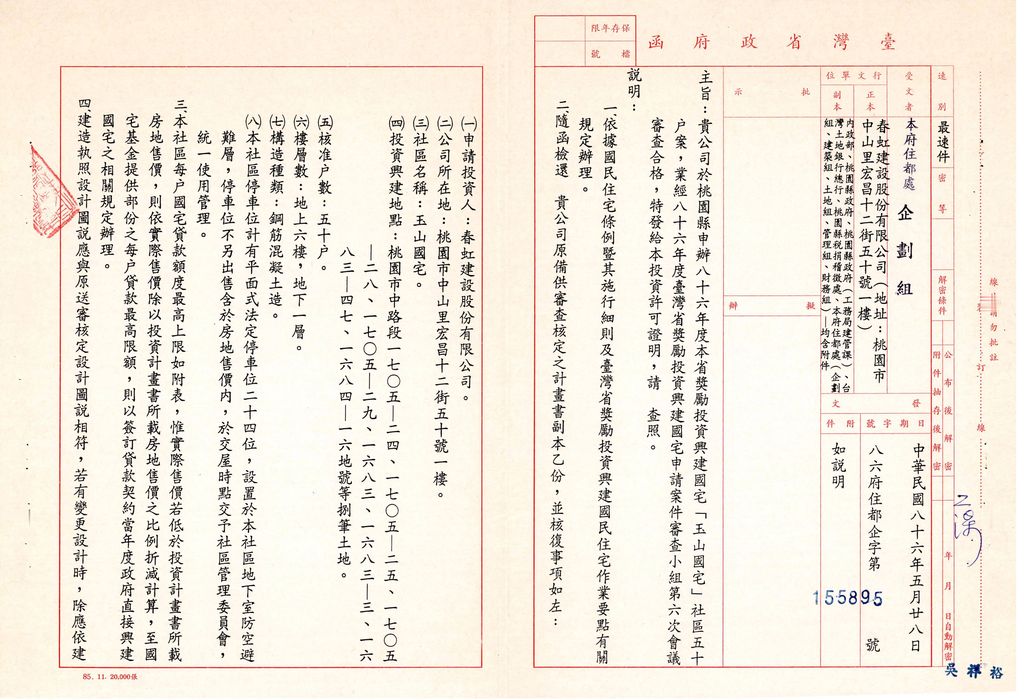 臺灣省政府函
保存年限
檔號
速別
最速件
密等
解密條件
公布後解密
附件抽存後解密
年 月 日自動解密
受文者
本府住都處 企劃組
行文單位
正本
春虹建設股份有限公司(地址:桃園市中山里宏昌十二街五十號一樓)
副本
內政部、桃園縣政府、桃園縣政府(工務局建管課)、台
灣土地銀行總行、桃園縣稅捐稽徵處、本府住都處(企劃
組、建築組、土地組、管理組、財務組)—均含附件
發文
日期
中華民國八十六年五月廿八日
字號
八六府住都企字第 155895 號
附件
如說明
批示
擬辦
主旨:貴公司於桃園縣申辦八十六年度本省獎勵投資興建國宅「玉山國宅」社區五十
户案,業經八十六年度臺灣省獎勵投資興建國宅申請案件審查小組第六次會議
審查合格,特發給本投資許可證明,請 查照。
說明:
一、依據國民住宅條例暨其施行細則及臺灣省獎勵投資興建國民住宅作業要點有關
規定辦理。
二、隨函檢還 貴公司原備供審查核定之計畫書副本乙份,並核復事項如左:
㈠申請投資人:春虹建設股份有限公司。
㈡公司所在地:桃園市中山里宏昌十二街五十號一樓。
㈢社區名稱:玉山國宅。
㈣投資興建地點:桃園市中路段一七〇五—二四、一七〇五—二五、一七〇五
—二八、一七〇五—二九、一六八三、一六八三—三、一六
八三—四七、一六八四—一六地號等捌筆土地。
㈤核准户數:五十户。
㈥樓層數:地上六樓,地下一層。
㈦構造種類:鋼筋混凝土造。
㈧本社區停車位計有平面式法定停車位二十四位,設置於本社區地下室防空避
難層,停車位不另出售含於房地售價內,於交屋時點交予社區管理委員會,
統一使用管理。
三、本社區每户國宅貸款額度最高上限如附表,惟實際售價若低於投資計畫書所載
房地售價,則依實際售價除以投資計畫書所載房地售價之比例折減計算,至國
宅基金提供部份之每户貸款最高限額,則以簽訂貸款契約當年度政府直接興建
國宅之相關規定辦理。
四、建造執照設計圖說應與原送審核定設計圖說相符,若有變更設計時,除應依建
裝
訂
線
線
請勿批註
吳祥裕
85. 11. 20,000張